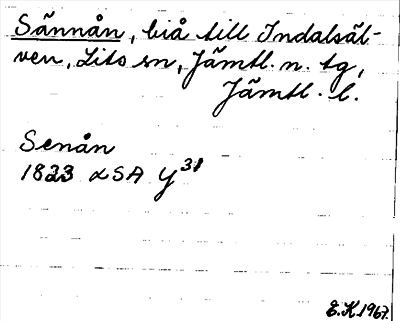 Sännån, biå till Indalsäl-
ven, Lits sn, Jämtl. n. tg,
Jämtl. l.
Senån
1823 LSA Y31
E.K. 1967.